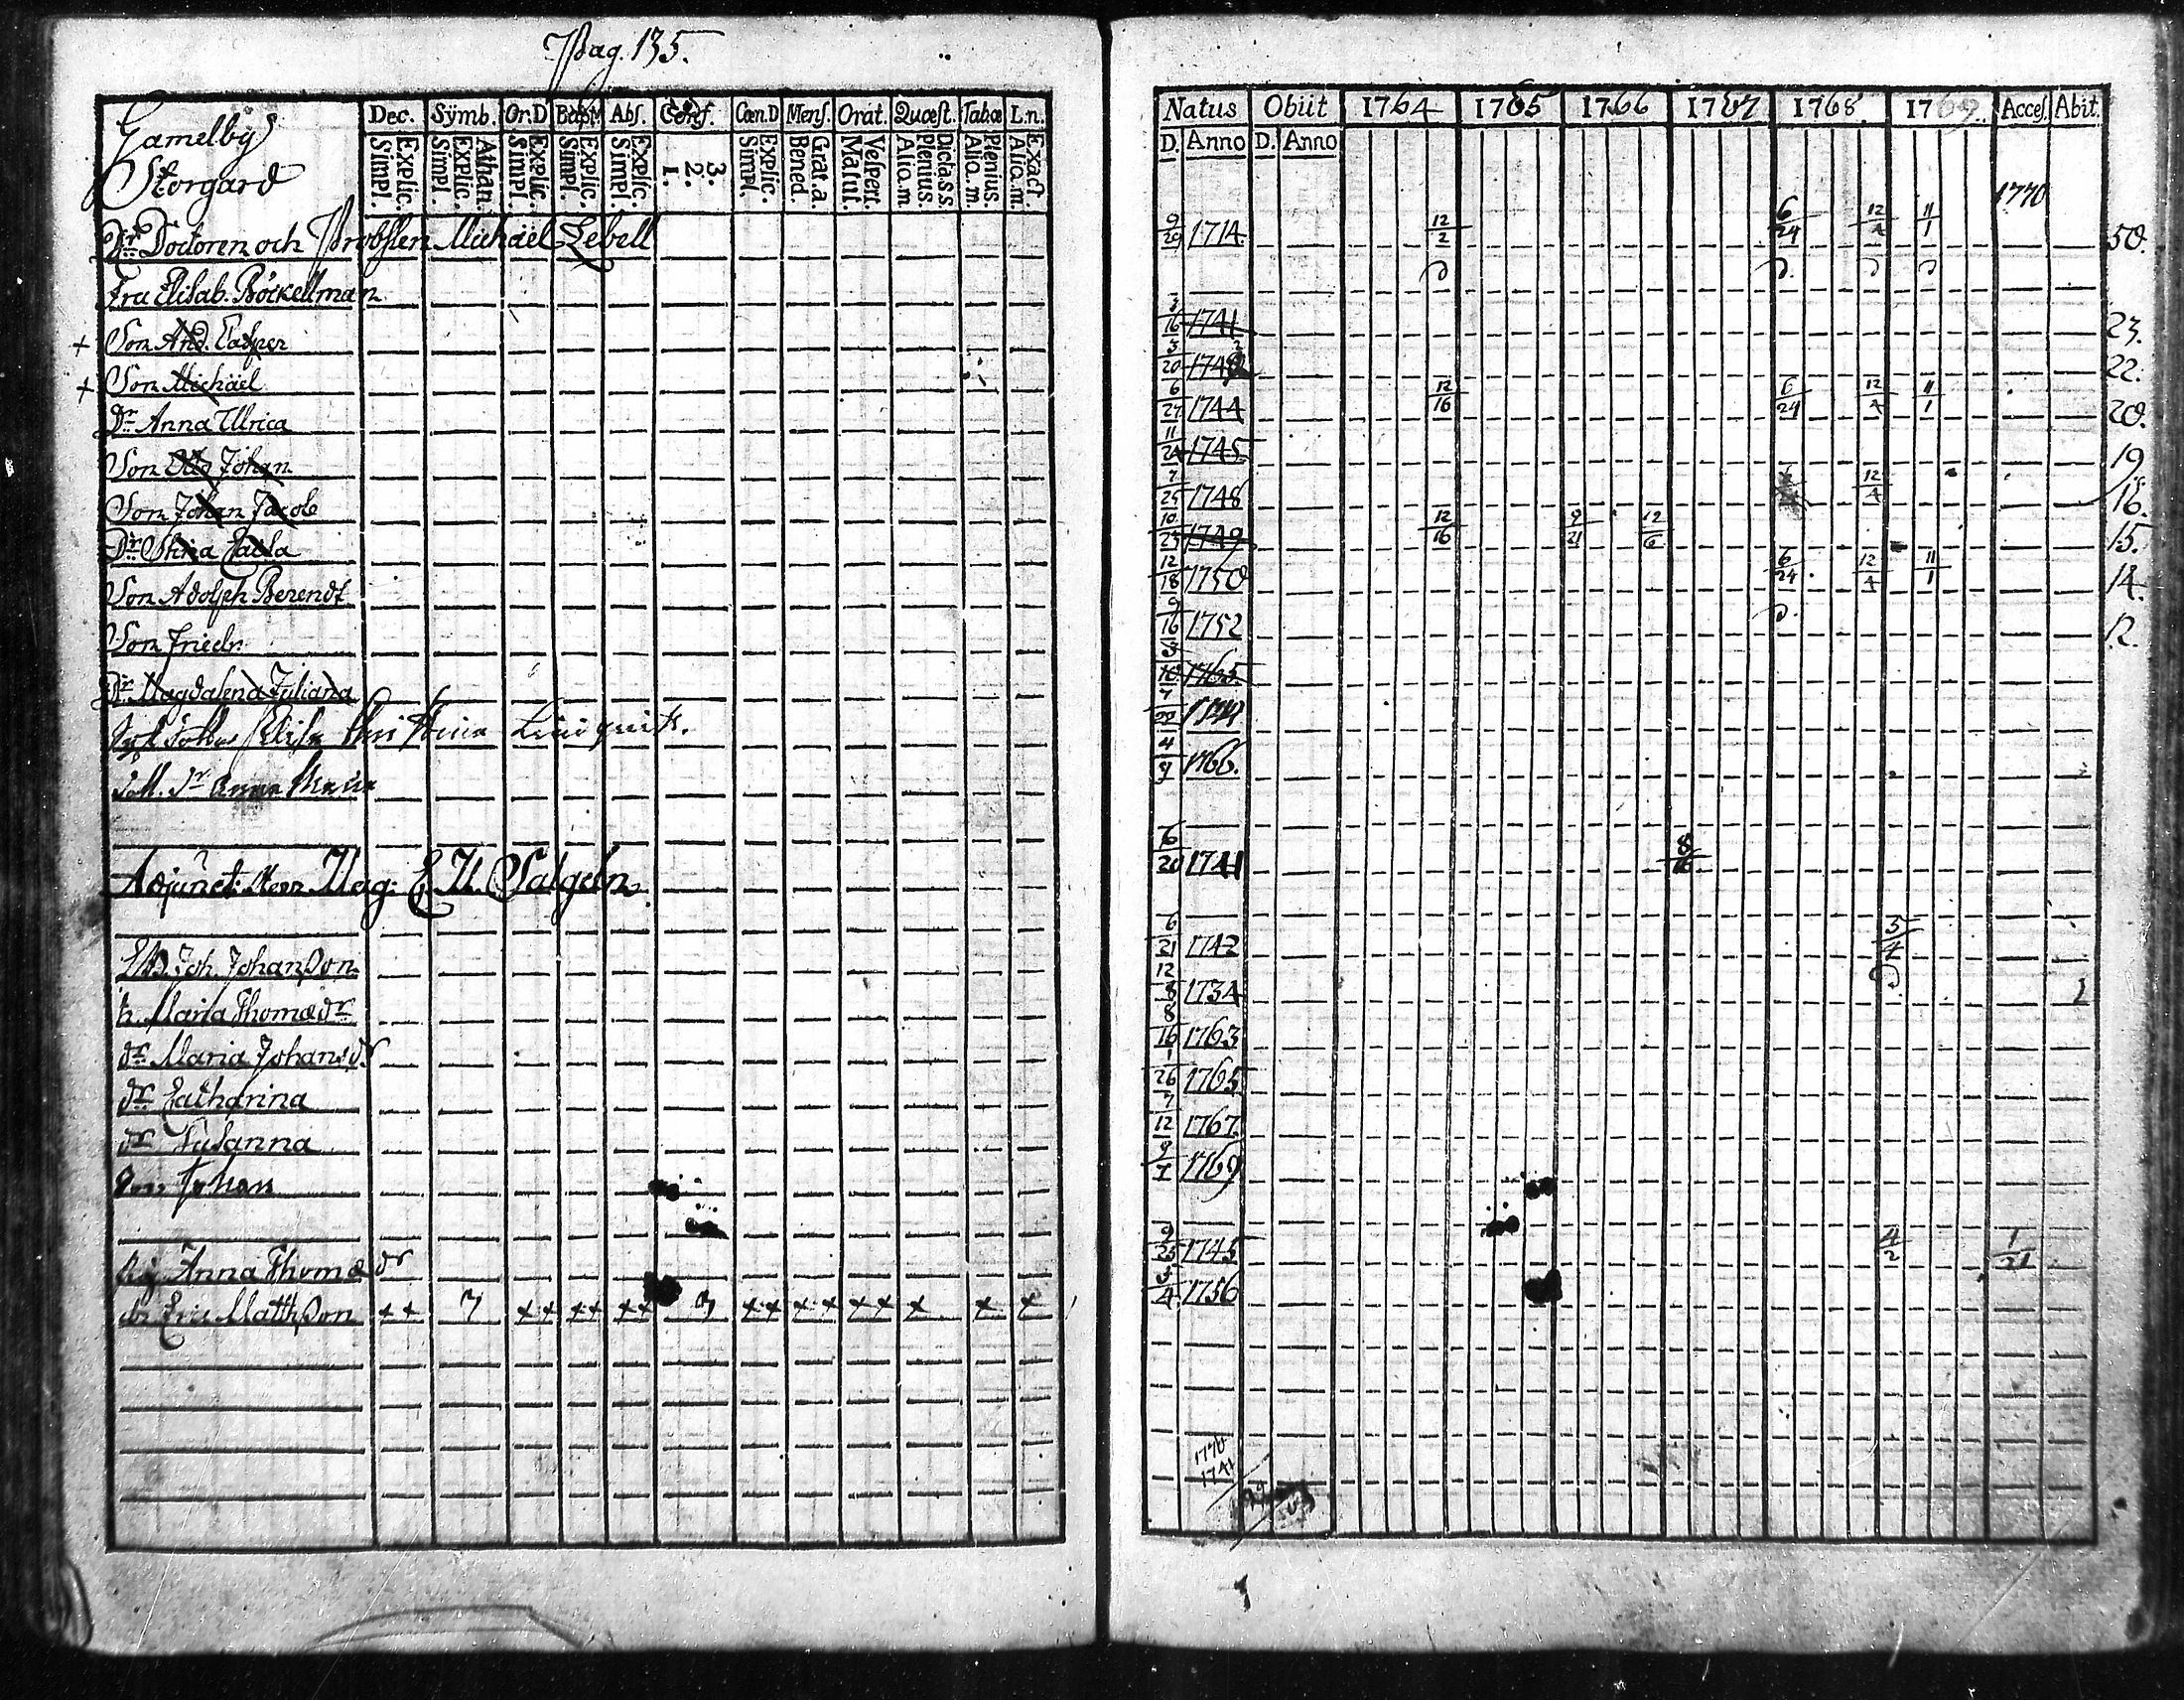 Pag. 135.
Gamelby
Storgård
Dec. Symb. Or.D Bapt. Abs. Conf. Cœn.D Mens. Orat. Quæst. Tabæ L.n.
Simpl. Explic. Simpl. Explic. Athan. Simpl. Explic. Simpl. Explic. Simpl. Explic. 1. 2. 3. Simpl. Explic. Bened. Grat.a. Matut. Vespert. Alio.m Plenius. Dicta.s.s. Alio.m. Plenius. Alio.m. Exact.
Natus Obiit 1764 1765 1766 1767 1768. 1769. Acces. Abit.
D. Anno D. Anno
1770
Hr Doctoren och Probsten Michäel Lebell 9/29 1714 12/2 6/24 12/4 11/1 50.
Fru Elisab. Böckellman
+ Son And. Casper 16 1741 23.
+ Son Michäel 3/20 22.
Dr Anna Ulrica 6/27 1744 12/16 6/24 12/4 11/1 20.
Son Otto Johan 11/24 1745 19
Son Johan Jacob 7/25 1748 12/4 16.
Dr Stina Cajsa 10/25 1749 12/16 9/21 12/6 15.
Son Adolph Berendt 12/18 1750 6/24. 12/4 11/1 14.
Son Friedr. 9/16 1752 12.
Dr Magdalena Juliana 1765
Elisa Christina Linquist. 7/22
Dr Anna Maria 4/9 1766.
Adjunct: Herr Mag: E. U Salgeln 6/20 1741 8/16
Joh. Johansson 6/21 1742 5/4
h. Maria Thomædr 12/8 1734
dr Maria Johansdr 8/16 1763
dr Catharina 1/26 1765
dr Susanna 7/12 1767
Son Johan 9/7 1769
Pig Anna Thomædr 9/25 1745 4/2 1/21
dr Eric Mattsson ++ 7 ++ ++ ++ 7 ++ ++ ++ + + + 3/4 1756
1770
1741